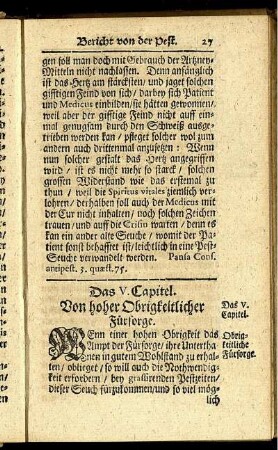 Bericht von der Pest. 27
gen soll man doch mit Gebrauch der Artzney-
Mitteln nicht nachlassen. Denn anfänglich
ist das Hertz am stärcksten/ und jaget solchen
gifftigen Feind von sich/ darbey sich Patient
und Medicus einbilden/ sie hätten gewonnen/
weil aber der gifftige Feind nicht auff ein-
mal genugsam durch den Schweiß ausge-
trieben werden kan/ pfleget solcher wol zum
andern auch drittenmal anzusetzen: Wenn
nun solcher gestalt das Hertz angegriffen
wird/ ist es nicht mehr so starck/ solchen
grossen Widerstand wie das erstemal zu
thun/ weil die Spiritus vitales ziemlich ver-
lohren/ derhalben soll auch der Medicus mit
der Cur nicht inhalten/ noch solchen Zeichen
trauen/ und auff die Crisin warten/ denn es
kan ein ander alte Seuche/ womit der Pa-
tient sonst behafftet ist/ leichtlich in eine Pest-
Seuche verwandelt werden. Pansa Cons.
antipest. 3. quæst. 75.
Das V. Capitel.
Von hoher Obrigkeitlicher
Fürsorge.
Das V.
Capitel.
Obrig-
keitliche
Fürsorge.
WEnn einer hohen Obrigkeit das
Ampt der Fürsorge/ ihre Untertha-
nen in gutem Wohlstand zu erhal-
ten/ oblieget/ so will auch die Nothwendig-
keit erfordern/ bey grassirenden Pestzeiten/
dieser Seuch fürzukommen/ und so viel mög-
lich